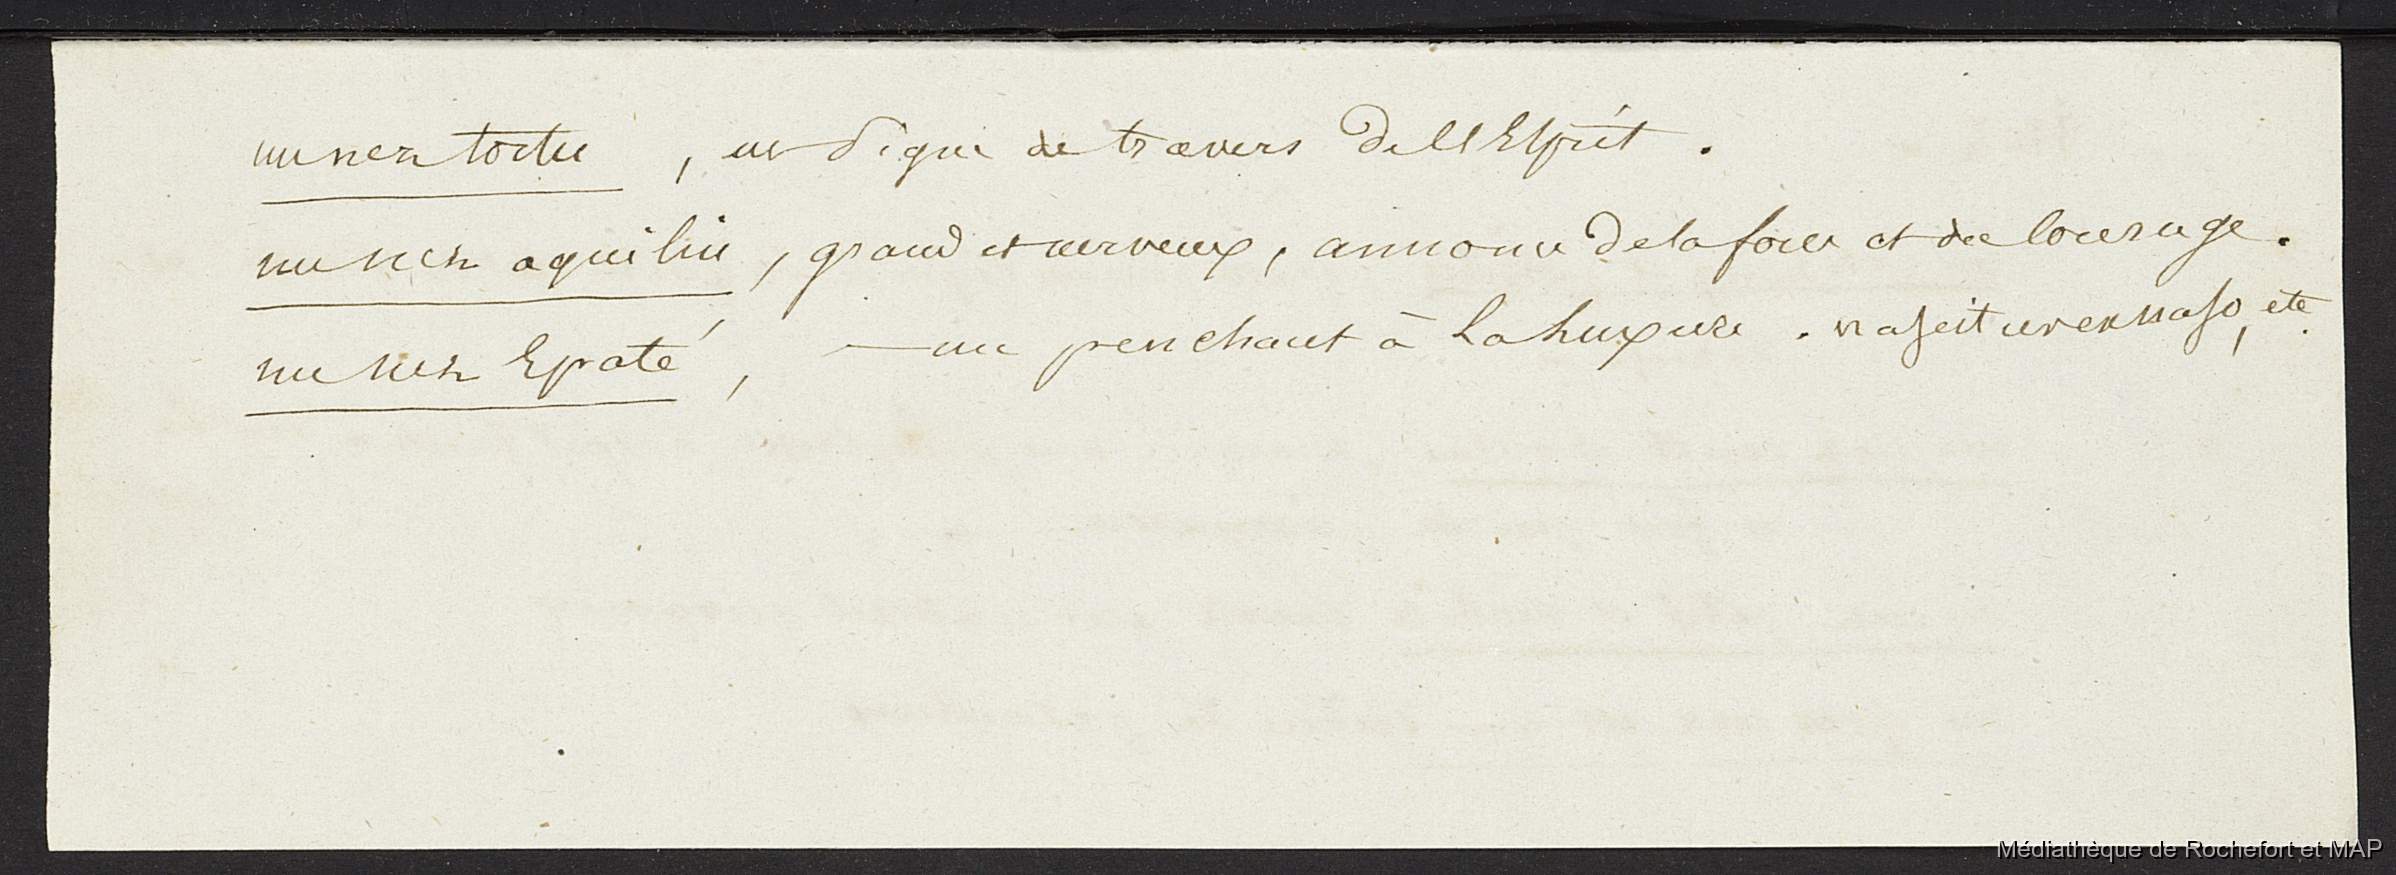 un nez tortu, est signe de travers de l'Esprit.
un nez aquilin, grand et nerveux, annonce de la force et du courage.
un nez Epaté, — un penchant à la Luxure. nascitur ex naso, etc
Médiathèque de Rochefort et MAP